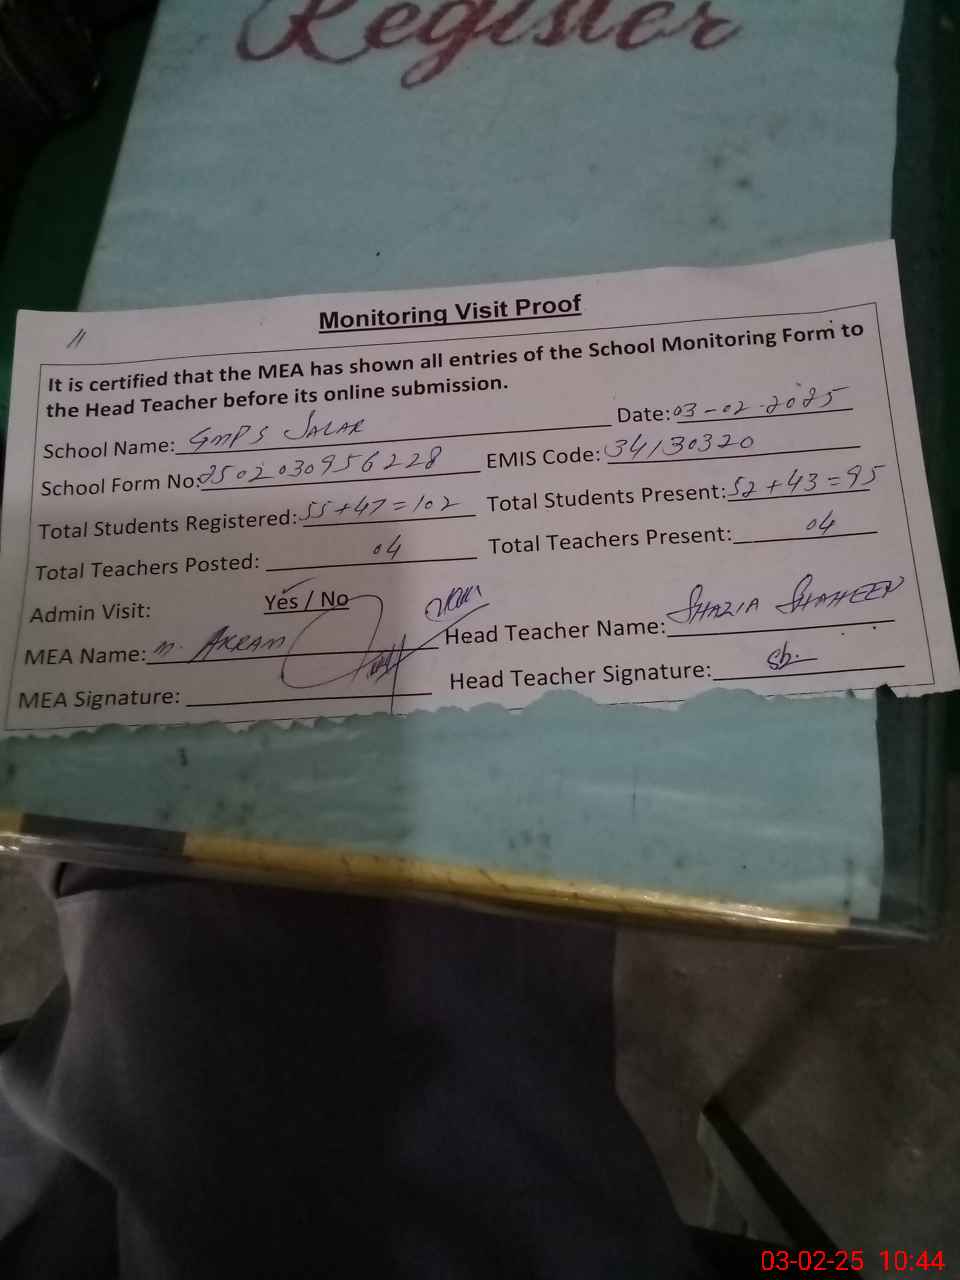 Register
11
Monitoring Visit Proof
It is certified that the MEA has shown all entries of the School Monitoring Form to
the Head Teacher before its online submission.
School Name: GMPS SALAR Date: 03-02-2025
School Form No: 2502030956228 EMIS Code: 34130320
Total Students Registered: 55+47=102 Total Students Present: 52+43=95
Total Teachers Posted: 04 Total Teachers Present: 04
Admin Visit: Yes / No
MEA Name: M. AKRAM Head Teacher Name: SHAZIA SHAHEEN
MEA Signature: Head Teacher Signature: Sh.
03-02-25 10:44